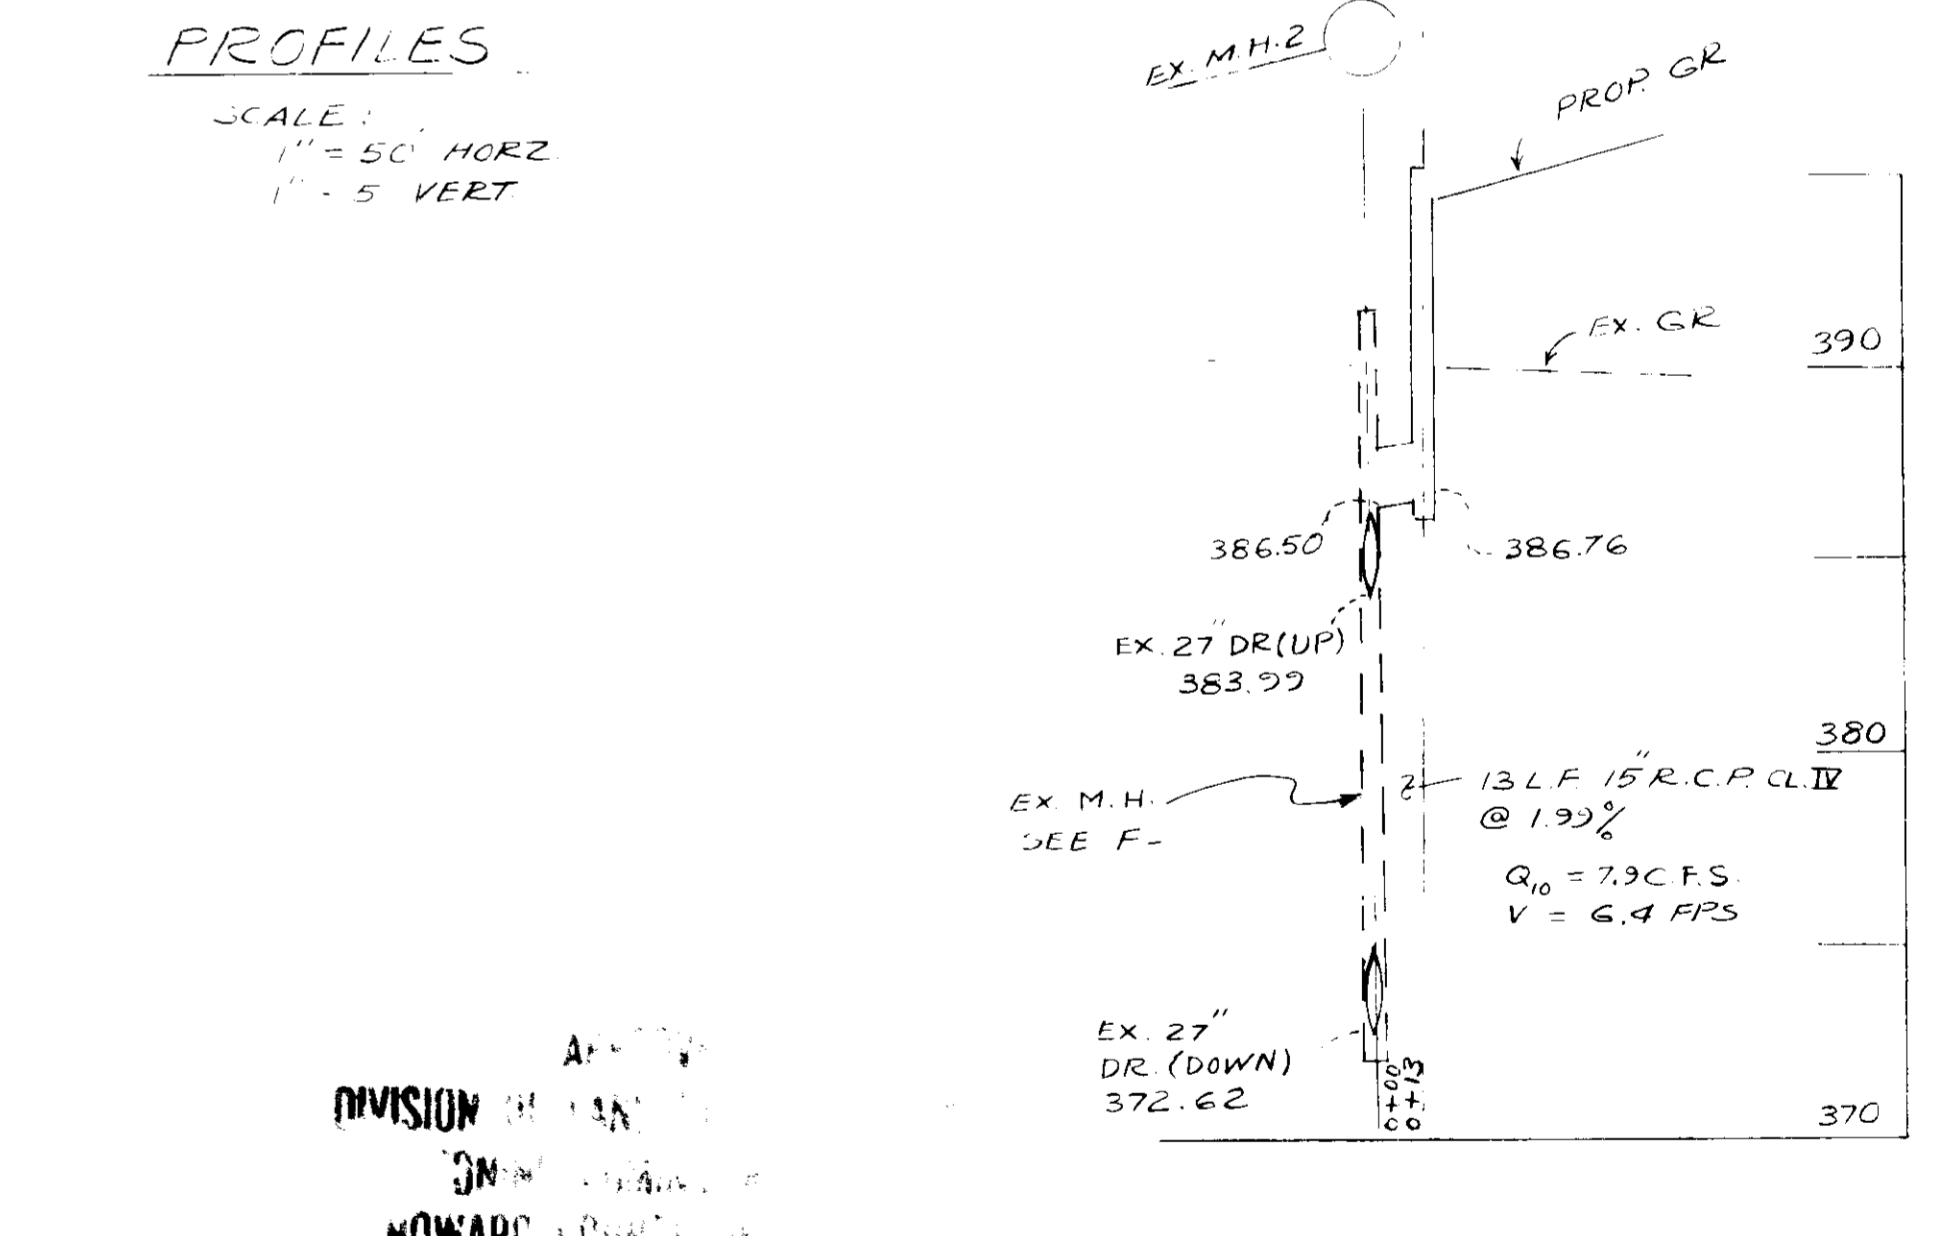 PROFILES
SCALE:
1" = 50' HORZ.
1" - 5 VERT.
EX. M.H. 2
PROP. GR
EX. GR
390
386.50
386.76
EX. 27" DR (UP)
383.99
380
EX. M.H.
SEE F-
13 L.F. 15" R.C.P. CL. IV
@ 1.99%
Q10 = 7.9 C.F.S.
V = 6.4 FPS
EX. 27"
DR. (DOWN)
372.62
0+00
0+13
370
DIVISION